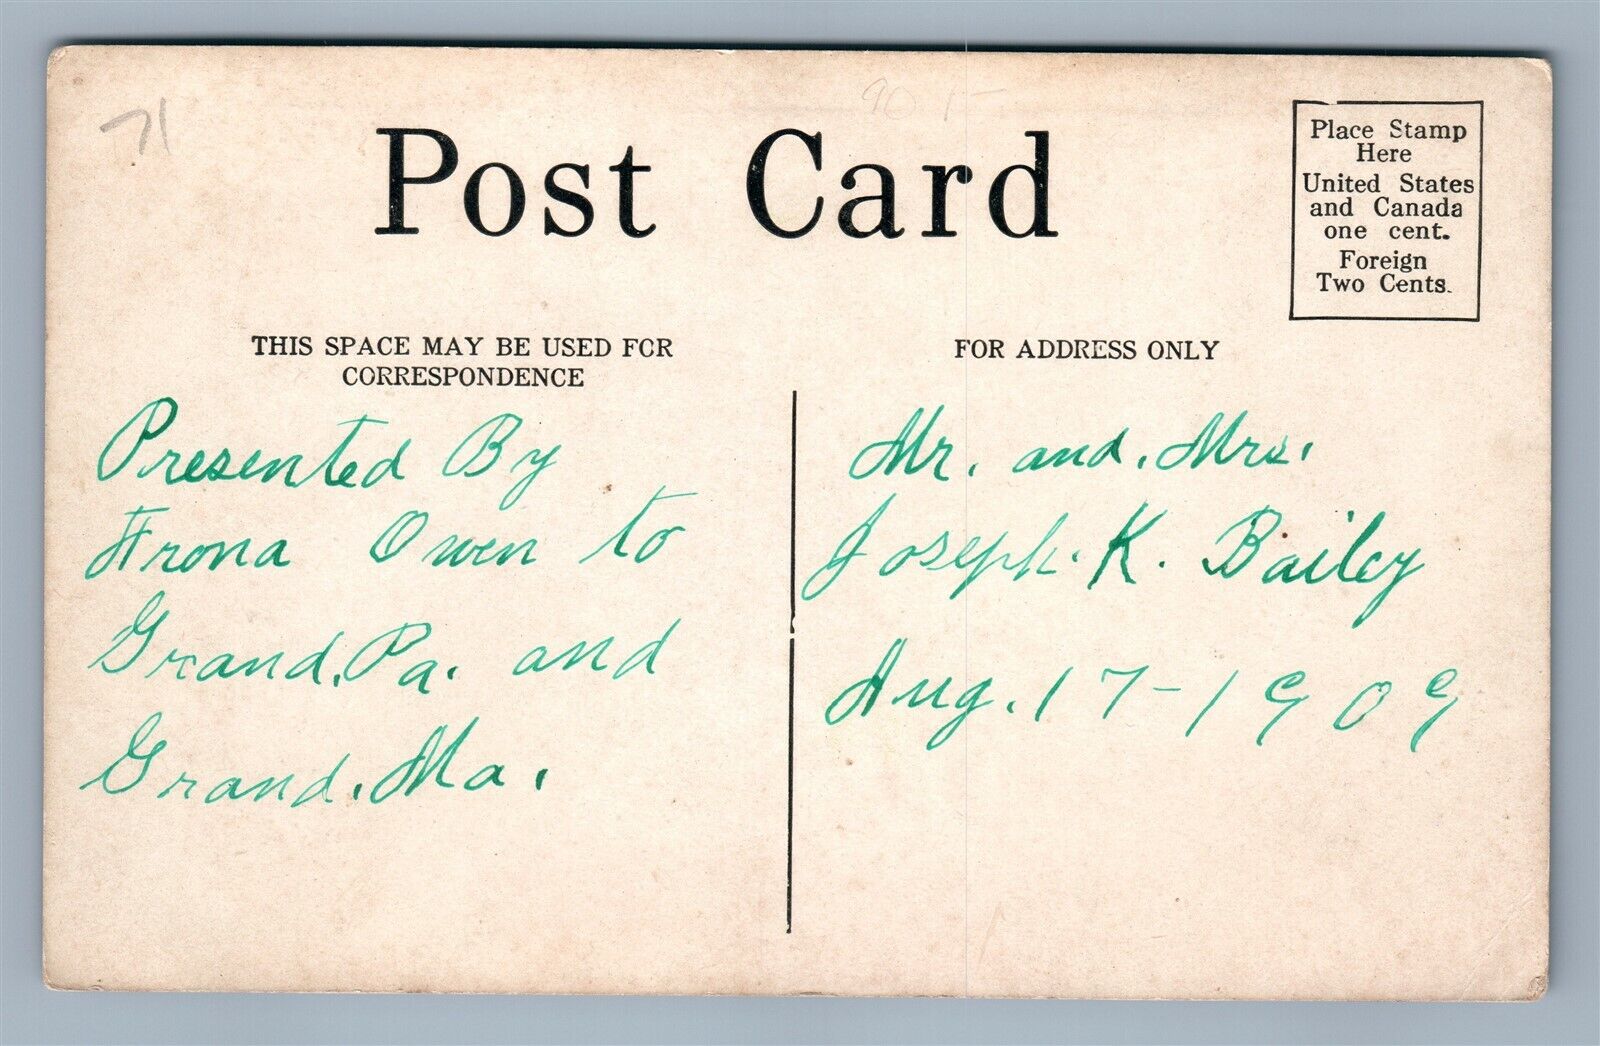 71
Post Card
Place Stamp
Here
United States
and Canada
one cent.
Foreign
Two Cents.
THIS SPACE MAY BE USED FOR
CORRESPONDENCE
Presented By
Frona Owen to
Grand.Pa. and
Grand.Ma.
FOR ADDRESS ONLY
Mr. and. Mrs.
Joseph. K. Bailey
Aug. 17-1909